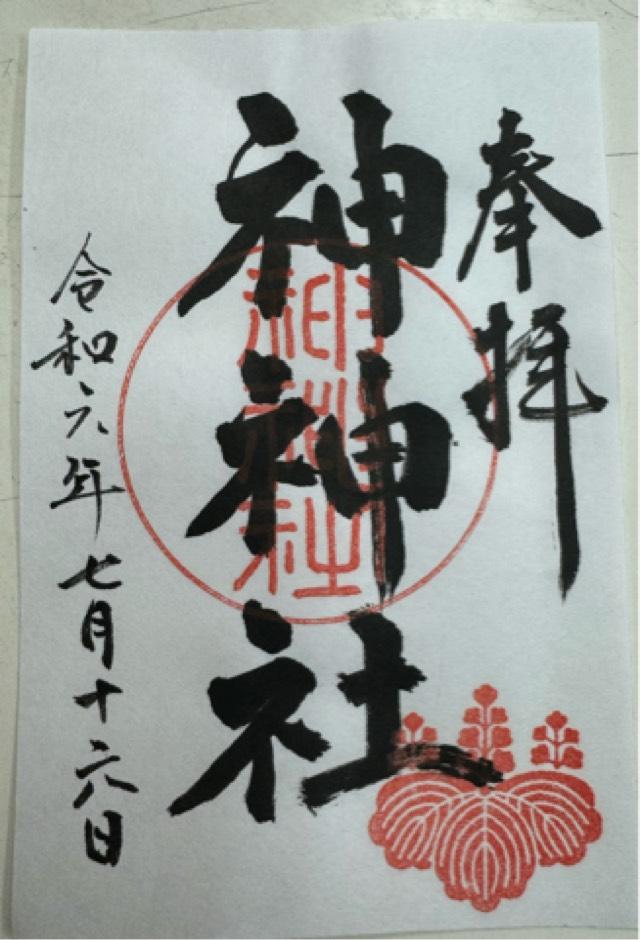 奉拝
神神社
神神社
令和六年七月十六日